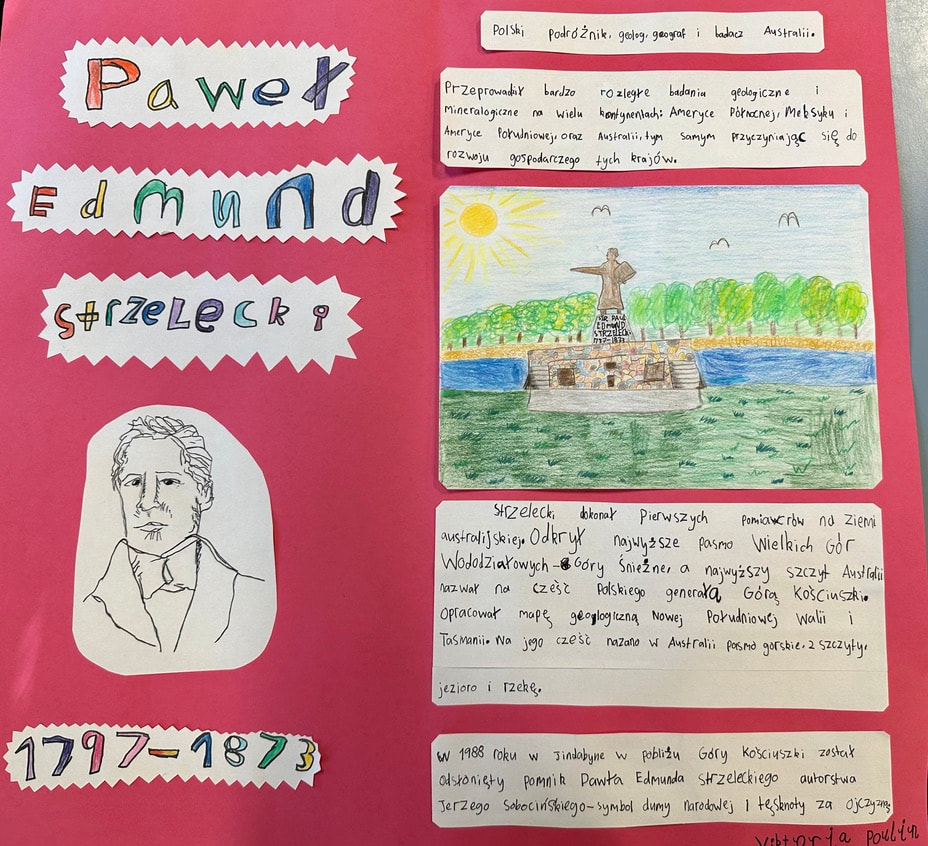 Paweł
Edmund
Strzelecki
1797-1873
Polski podróżnik, geolog, geograf i badacz Australii.
Przeprowadził bardzo rozległe badania geologiczne i
mineralogiczne na wielu kontynentach: Ameryce Północnej, Meksyku i
Ameryce Południowej, oraz Australii, tym samym przyczyniając się do
rozwoju gospodarczego tych krajów.
SIR PAUL
EDMUND
STRZELECKI
1797-1873
Strzelecki dokonał pierwszych pomiawerów na ziemi
australijskiej. Odkrył najwyższe pasmo Wielkich Gór
Wododziałowych - Góry Śnieżne, a najwyższy szczyt Australii
nazwał na cześć Polskiego generała Górą Kościuszki.
Opracował mapę geologiczną Nowej Południowej Walii i
Tasmanii. Na jego cześć nazano w Australii pasmo górskie, 2 szczyty,
jezioro i rzekę.
W 1988 roku w Jindabyne w pobliżu Góry Kościuszki został
odsłonięty pomnik Pawła Edmunda Strzeleckiego autorstwa
Jerzego Sobocińskiego-symbol dumy narodowej i tęsknoty za ojczyzną
Viktoria Paulin